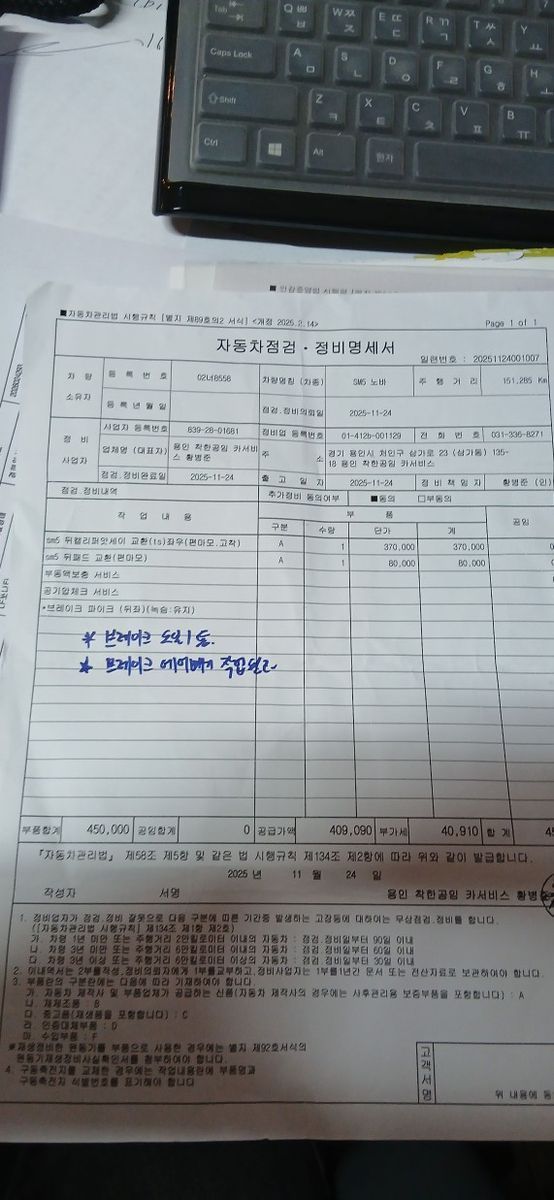 Tab Q ㅂ W ㅈ E ㄷ R ㄱ T ㅅ Y ㅛ
Caps Lock A ㅁ S ㄴ D ㅇ F ㄹ G ㅎ H
Shift Z ㅋ X ㅌ C ㅊ V ㅍ B ㅠ
Ctrl Alt 한자
■자동차관리법 시행규칙 [별지 제89호의2 서식] <개정 2025.2.14> Page 1 of 1
자동차점검 · 정비명세서
일련번호 : 20251124001007
차량 소유자 등록번호 02너8558 차량명칭 (차종) SM5 노바 주행거리 151,285 Km
등록년월일 점검.정비의뢰일 2025-11-24
정비 사업자 사업자 등록번호 839-28-01681 정비업 등록번호 01-412b-001129 전화번호 031-336-8271
업체명 (대표자) 용인 착한공임 카서비스 황병준 주소 경기 용인시 처인구 삼가로 23 (삼가동) 135-18 용인 착한공임 카서비스
점검.정비완료일 2025-11-24 출고일자 2025-11-24 정비책임자 황병준 (인)
점검.정비내역 추가정비 동의여부 ■동의 □부동의
작업내용 부품 공임
구분 수량 단가 계
sm5 뒤캘리퍼앗세이 교환(ts)좌우(편마모.고착) A 1 370,000 370,000 0
sm5 뒤패드 교환(편마모) A 1 80,000 80,000 0
부동액보충 서비스
공기압체크 서비스
*브레이크 파이크 (뒤좌)(녹슴:유지)
* 브레이크 오일 1통.
* 브레이크 에어빼기 작업
부품합계 450,000 공임합계 0 공급가액 409,090 부가세 40,910 합 계 45
「자동차관리법」 제58조 제5항 및 같은 법 시행규칙 제134조 제2항에 따라 위와 같이 발급합니다.
2025 년 11 월 24 일
작성자 서명 용인 착한공임 카서비스 황병준
1. 정비업자가 점검.정비 잘못으로 다음 구분에 따른 기간중 발생하는 고장등에 대하여는 무상점검.정비를 합니다.
([자동차관리법 시행규칙] 제134조 제1항 제2호)
가. 차령 1년 미만 또는 주행거리 2만킬로미터 이내의 자동차 : 점검.정비일부터 90일 이내
나. 차령 3년 미만 또는 주행거리 6만킬로미터 이내의 자동차 : 점검.정비일부터 60일 이내
다. 차령 3년 이상 또는 주행거리 6만킬로미터 이상의 자동차 : 점검.정비일부터 30일 이내
2. 이내역서는 2부를작성,정비의뢰자에게 1부를교부하고,정비사업자는 1부를1년간 문서 또는 전산자료로 보관하여야 합니다.
3. 부품란의 구분란에는 다음에 따라 기재하여야 합니다
가. 자동차 제작사 및 부품업체가 공급하는 신품(자동차 제작사의 경우에는 사후관리용 보증부품을 포함합니다) : A
나. 재제조품 : B
다. 중고품(재생품을 포함합니다) : C
라. 인증대체부품 : D
마. 수입부품 : F
※재생정비한 원동기를 부품으로 사용한 경우에는 별지 제92호서식의
원동기재생정비사실확인서를 첨부하여야 합니다.
4. 구동축전지를 교체한 경우에는 작업내용란에 부품명과
구동축전지 식별번호를 표기해야 합니다
고객서명
위 내용에 동